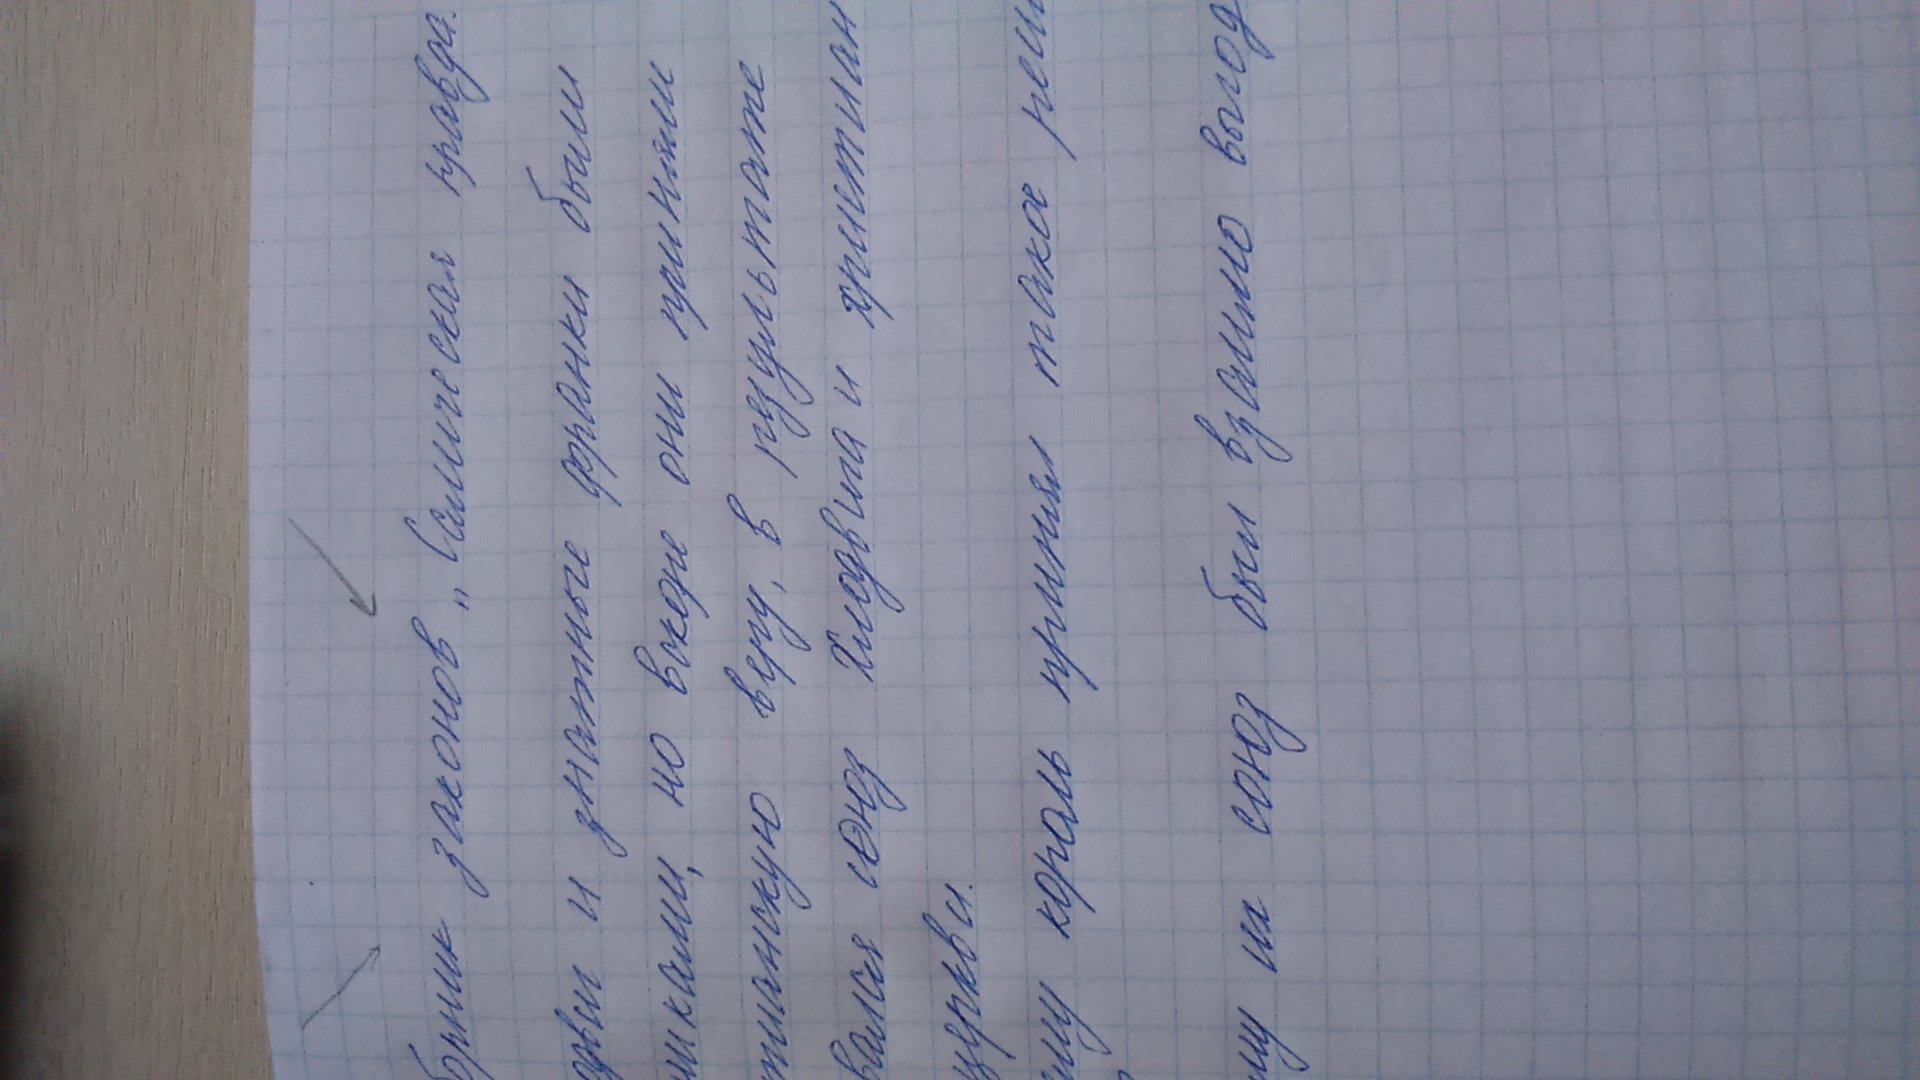 борник законов „Салическая правда.
одвиг и знатные франки были
никами, но вскоре они приняли
тианскую веру, в результате
вался союз Хлодвига и христиан
церкви.
ему король принял такое реш
му их союз был взаимо выгод